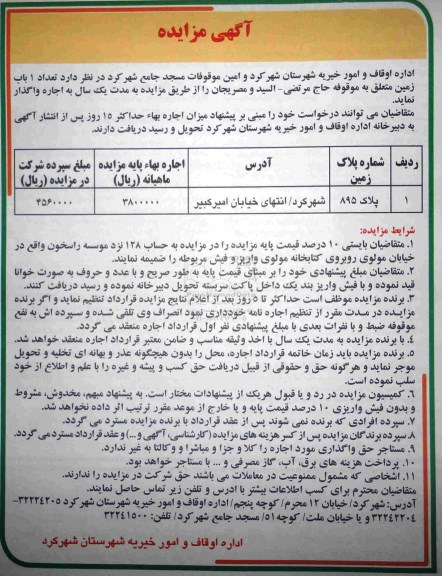 آگهی مزایده
اداره اوقاف و امور خیریه شهرستان شهرکرد و امین موقوفات مسجد جامع شهرکرد در نظر دارد تعداد ۱ باب
زمین متعلق به موقوفه حاج مرتضی- السید و مصریجان را از طریق مزایده به مدت یک سال به اجاره واگذار
نماید.
متقاضیان می توانند درخواست خود را مبنی بر پیشنهاد میزان اجاره بهاء حداکثر ۱۵ روز پس از انتشار آگهی
به دبیرخانه اداره اوقاف و امور خیریه شهرستان شهرکرد تحویل و رسید دریافت دارند.
ردیف شماره پلاک زمین آدرس اجاره بهاء پایه مزایده ماهیانه (ریال) مبلغ سپرده شرکت در مزایده (ریال)
۱ پلاک ۸۹۵ شهرکرد/ انتهای خیابان امیرکبیر ۳۸۰۰۰۰۰ ۴۵۶۰۰۰۰
شرایط مزایده:
۱. متقاضیان بایستی ۱۰ درصد قیمت پایه مزایده را در مزایده به حساب ۱۲۸ نزد موسسه راسخون واقع در
خیابان مولوی روبروی کتابخانه مولوی واریز و فیش مربوطه را ضمیمه نمایند.
۲. متقاضیان مبلغ پیشنهادی خود را بر مبنای قیمت پایه به طور صریح و با عدد و حروف به صورت خوانا
قید نموده و با فیش واریز بند یک داخل پاکت سربسته تحویل دبیرخانه نموده و رسید دریافت کنند.
۳. برنده مزایده موظف است حداکثر تا ۵ روز بعد از اعلام نتایج مزایده قرارداد تنظیم نماید و اگر برنده
مزایده در مدت مقرر از تنظیم اجاره نامه خودداری نمود انصراف وی تلقی شده و سپرده اش به نفع
موقوفه ضبط و با نفرات بعدی با مبلغ پیشنهادی نفر اول قرارداد اجاره منعقد می گردد.
۴. با برنده مزایده به مدت یک سال با اخذ وثیقه مناسب و ضامن معتبر قرارداد اجاره منعقد خواهد شد.
۵. برنده مزایده باید زمان خاتمه قرارداد اجاره، محل را بدون هیچگونه عذر و بهانه ای تخلیه و تحویل
موجر نماید و هرگونه حق و حقوقی از قبیل دریافت حق کسب و پیشه و غیره را با علم و اطلاع از خود
سلب نموده است.
۶. کمیسیون مزایده در رد و یا قبول هریک از پیشنهادات مختار است. به پیشنهاد مبهم، مخدوش، مشروط
و بدون فیش واریزی ۱۰ درصد قیمت پایه و یا خارج از موعد مقرر ترتیب اثر داده نخواهد شد.
۷. سپرده افرادی که برنده نمی شوند پس از عقد قرارداد با برنده مزایده مسترد می گردد.
۸. سپرده برندگان مزایده پس از کسر هزینه های مزایده (کارشناسی، آگهی و ...) و عقد قرارداد مسترد می گردد.
۹. مستاجر حق واگذاری مورد اجاره را کلا و جزا و مباشرا و و کالتا به غیر ندارد.
۱۰. پرداخت هزینه های برق، آب، گاز مصرفی و ... با مستاجر خواهد بود.
۱۱. اشخاصی که مشمول ممنوعیت در معاملات می باشند حق شرکت در مزایده را ندارند.
متقاضیان محترم برای کسب اطلاعات بیشتر با ادرس و تلفن زیر تماس حاصل نمایند.
آدرس: شهرکرد/ خیابان ۱۲ محرم/ کوچه پنجم/ اداره اوقاف و امور خیریه شهرستان شهرکرد ۳۲۲۲۴۲۰۵-
۳۲۲۴۲۲۰۴ و یا خیابان ملت/ کوچه ۵۱/ مسجد جامع شهرکرد/ تلفن: ۳۲۲۴۱۵۰۰
اداره اوقاف و امور خیریه شهرستان شهرکرد